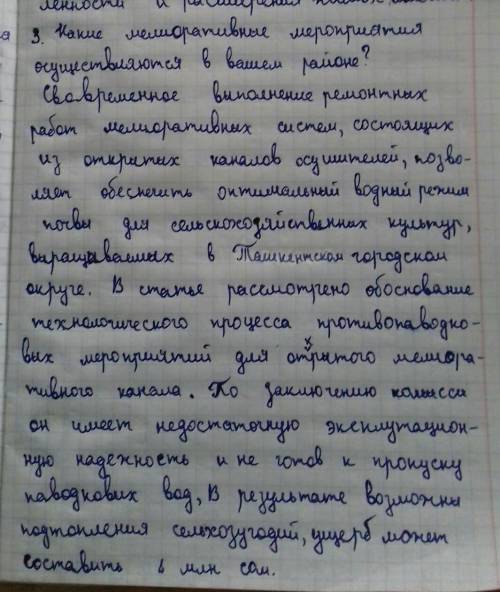 ленности и расширения
3. Какие мелиоративные мероприятия
осуществляются в вашем районе?
Своевременное выполнение ремонтных
работ мелиоративных систем, состоящих
из открытых каналов осушителей, позво-
ляет обеспечить оптимальный водный режим
почвы для сельскохозяйственных культур,
выращиваемых в Ташкентском городском
округе. В статье рассмотрено обоснование
технологического процесса противопаводко-
вых мероприятий для открытого мелиора-
тивного канала. По заключению комиссии
он имеет недостаточную эксплутацион-
ную надежность и не готов к пропуску
паводковых вод, В результате возможны
подтопления сельхозугодий, ущерб может
составить млн сом.